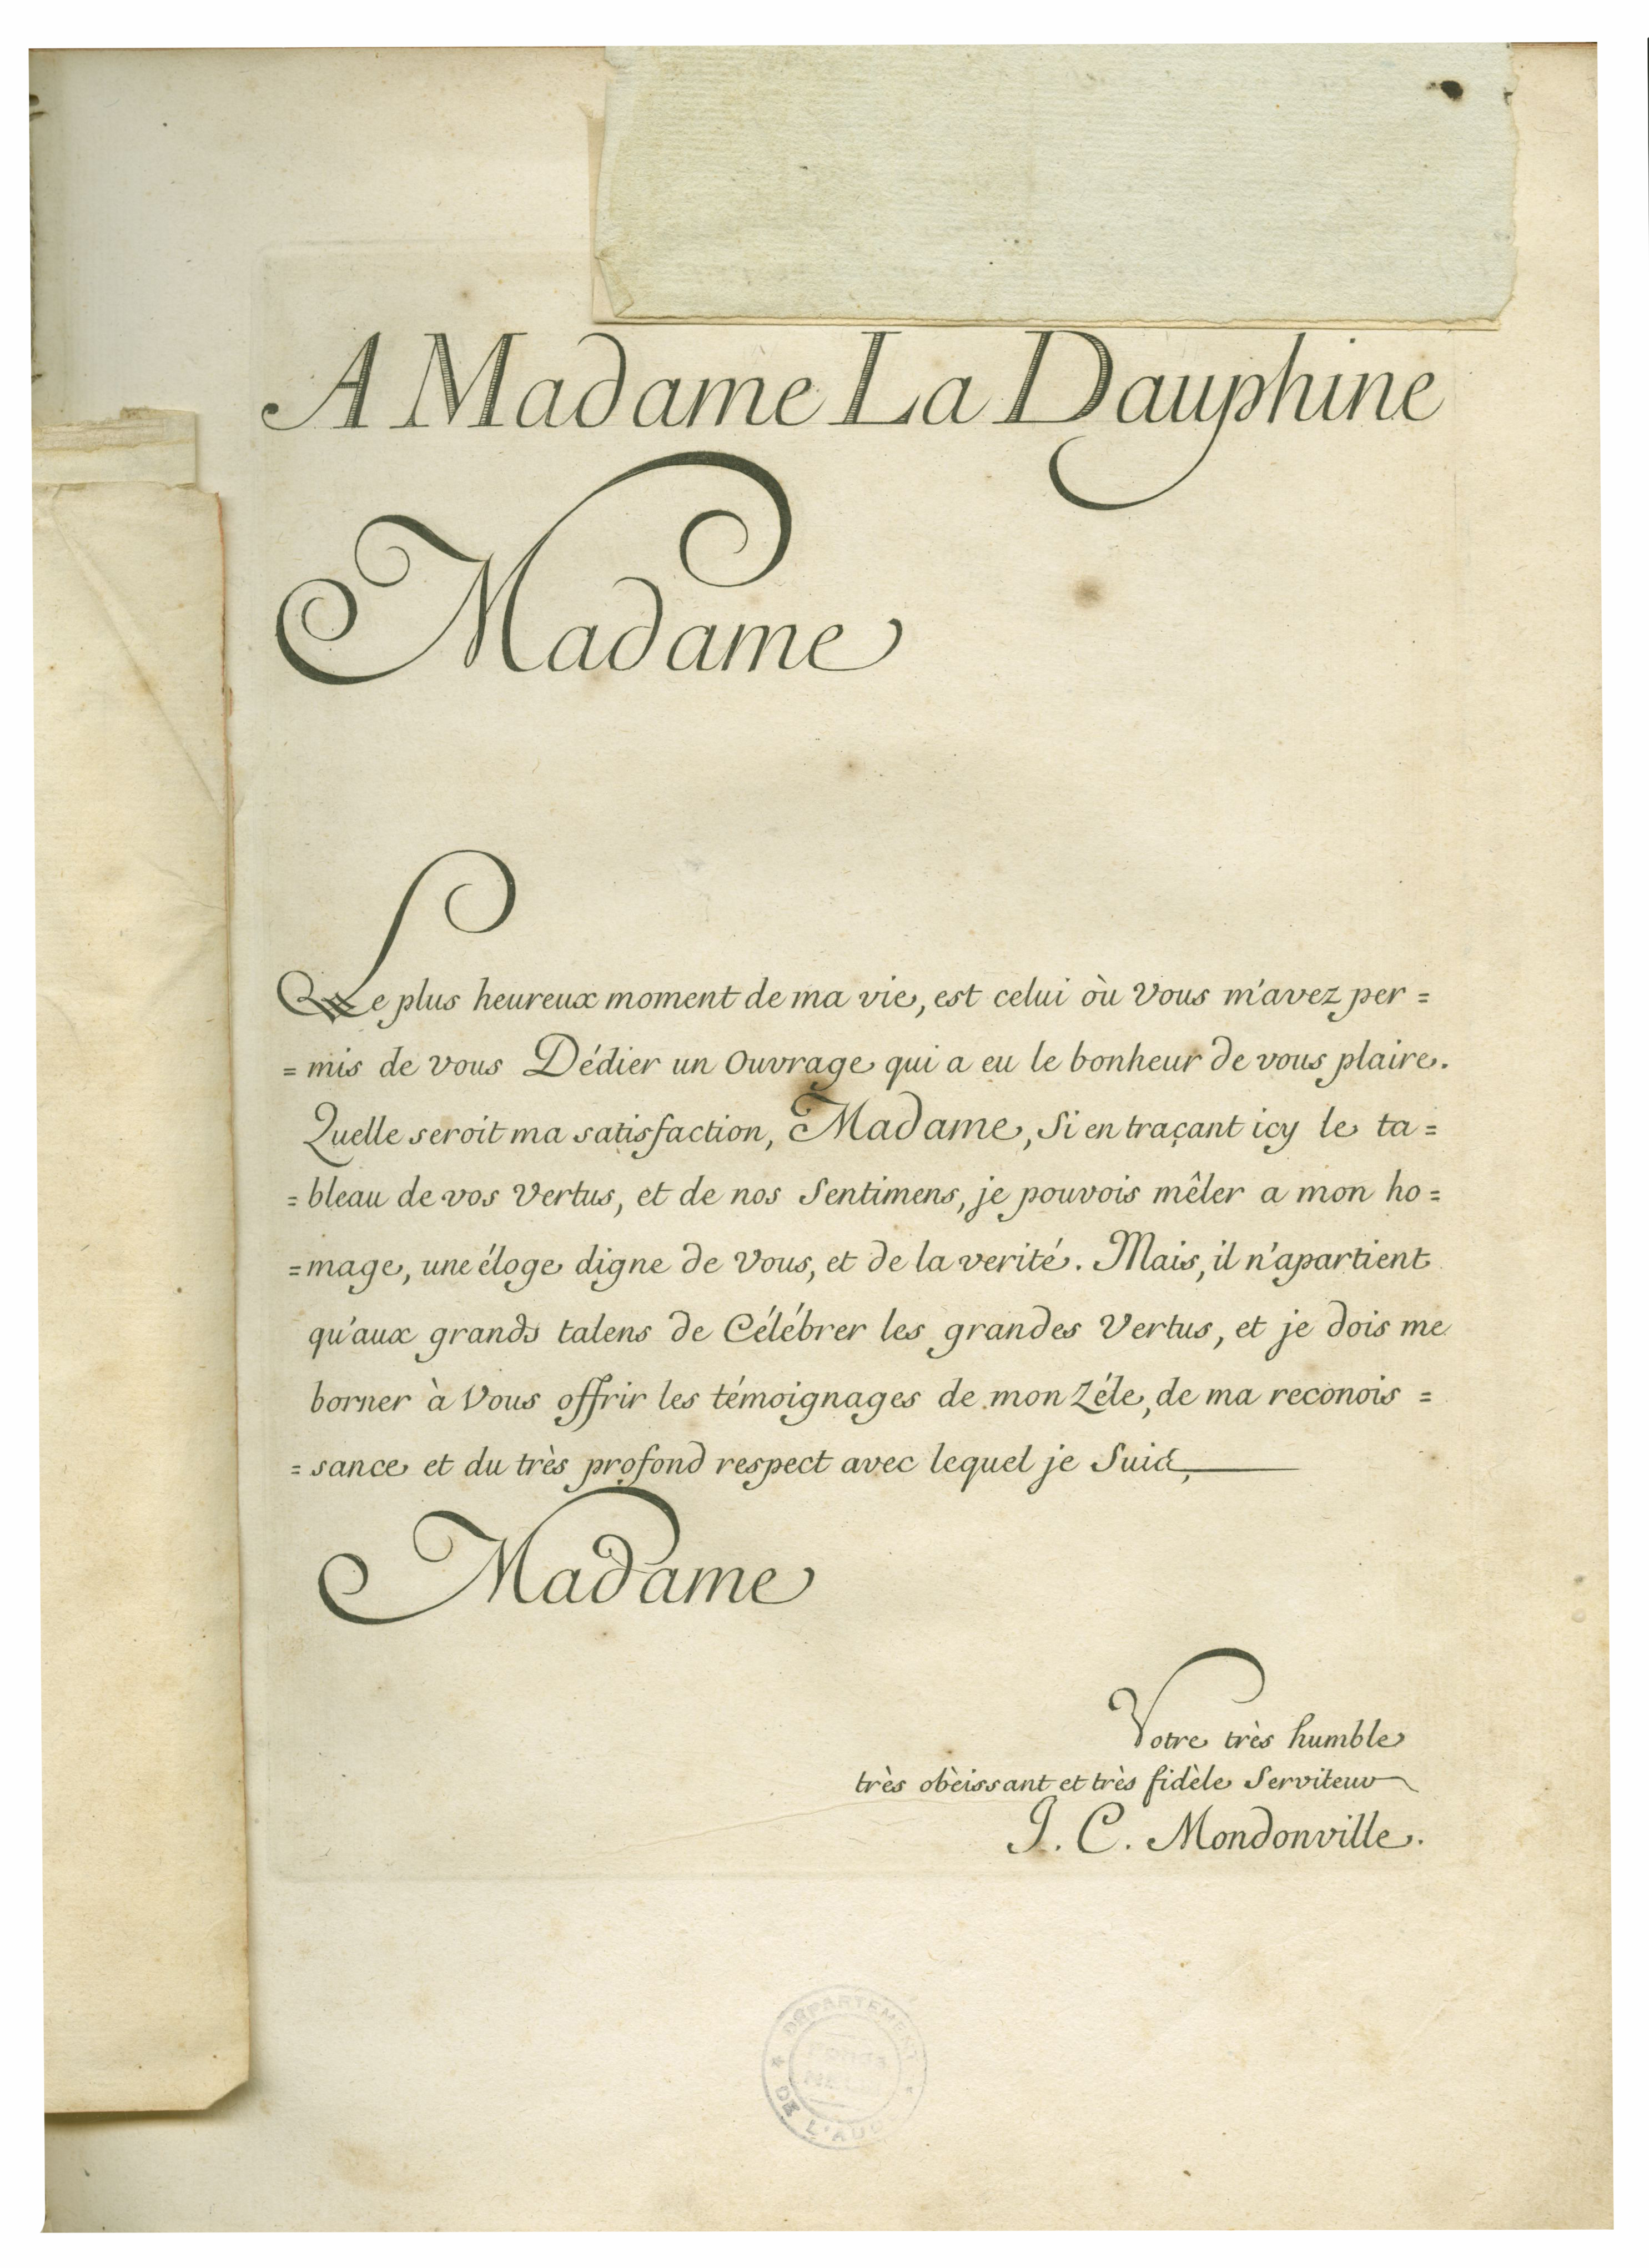 A Madame La Dauphine
Madame
Le plus heureux moment de ma vie, est celui où Vous m'avez per =
= mis de vous Dédier un Ouvrage qui a eu le bonheur de vous plaire.
Quelle seroit ma satisfaction, Madame, Si en traçant icy le ta =
= bleau de vos Vertus, et de nos Sentimens, je pouvois mêler a mon ho =
= mage, une éloge digne de Vous, et de la verité. Mais, il n'apartient
qu'aux grands talens de Célébrer les grandes Vertus, et je dois me
borner à Vous offrir les témoignages de mon Zéle, de ma reconois =
= sance et du très profond respect avec lequel je Suis,
Madame
Votre très humble
très obèissant et très fidèle Serviteur
J. C. Mondonville.
DÉPARTEMENT
DE L'AUDE